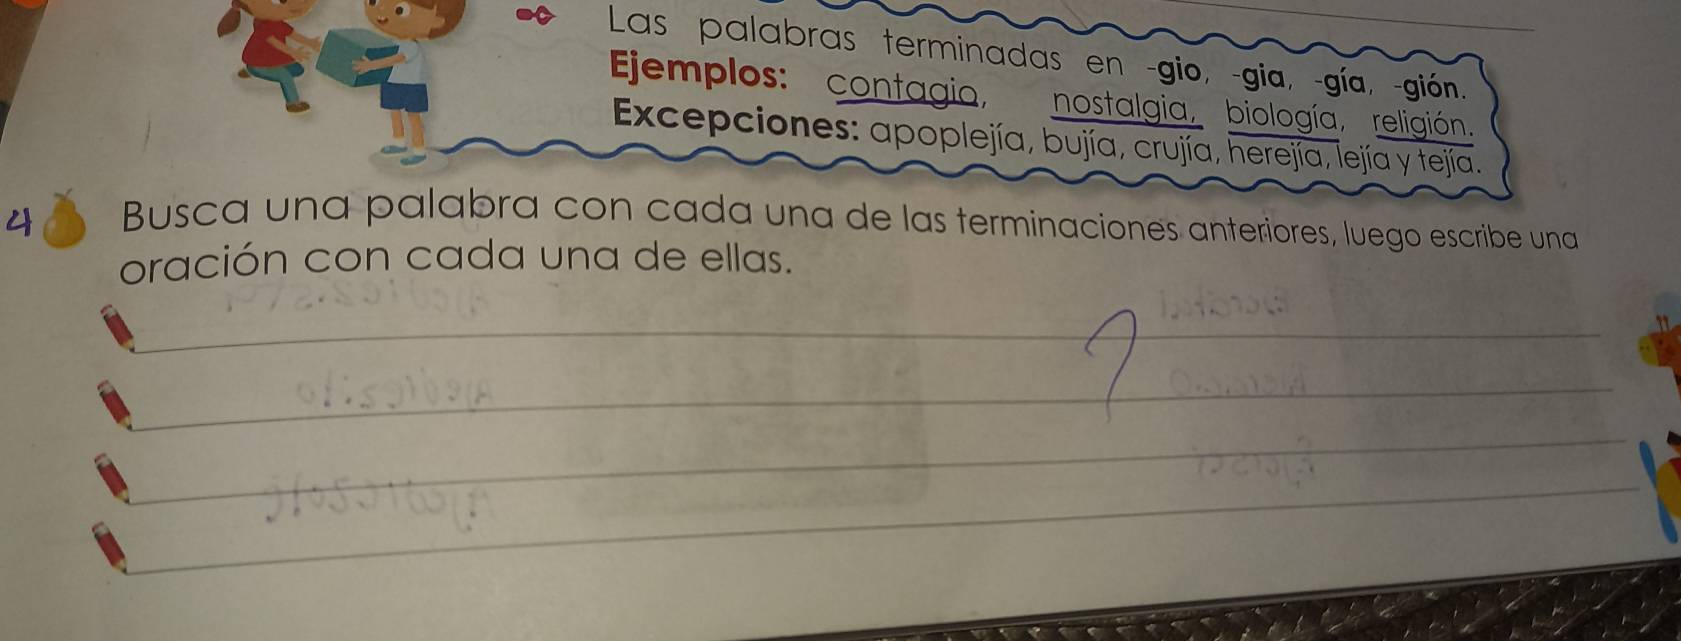 Las palabras terminadas en -gio, -gia, -gía, -gión.
Ejemplos: contagio, nostalgia, biología, religión.
Excepciones: apoplejía, bujía, crujía, herejía, lejía y tejía.
4 Busca una palabra con cada una de las terminaciones anteriores, luego escribe una
oración con cada una de ellas.
?